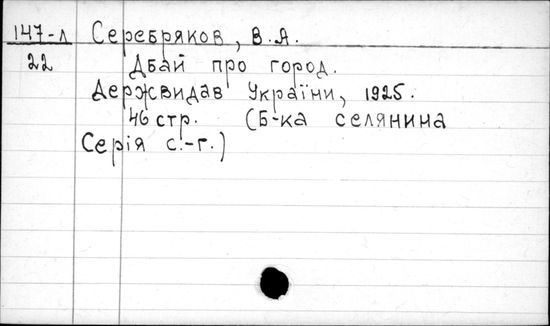 147-л Серебряков, В.А.
22 Дбай про город.
Держвидав України, 1925.
46 стр. (Б-ка селянина
Серія с.-г.)